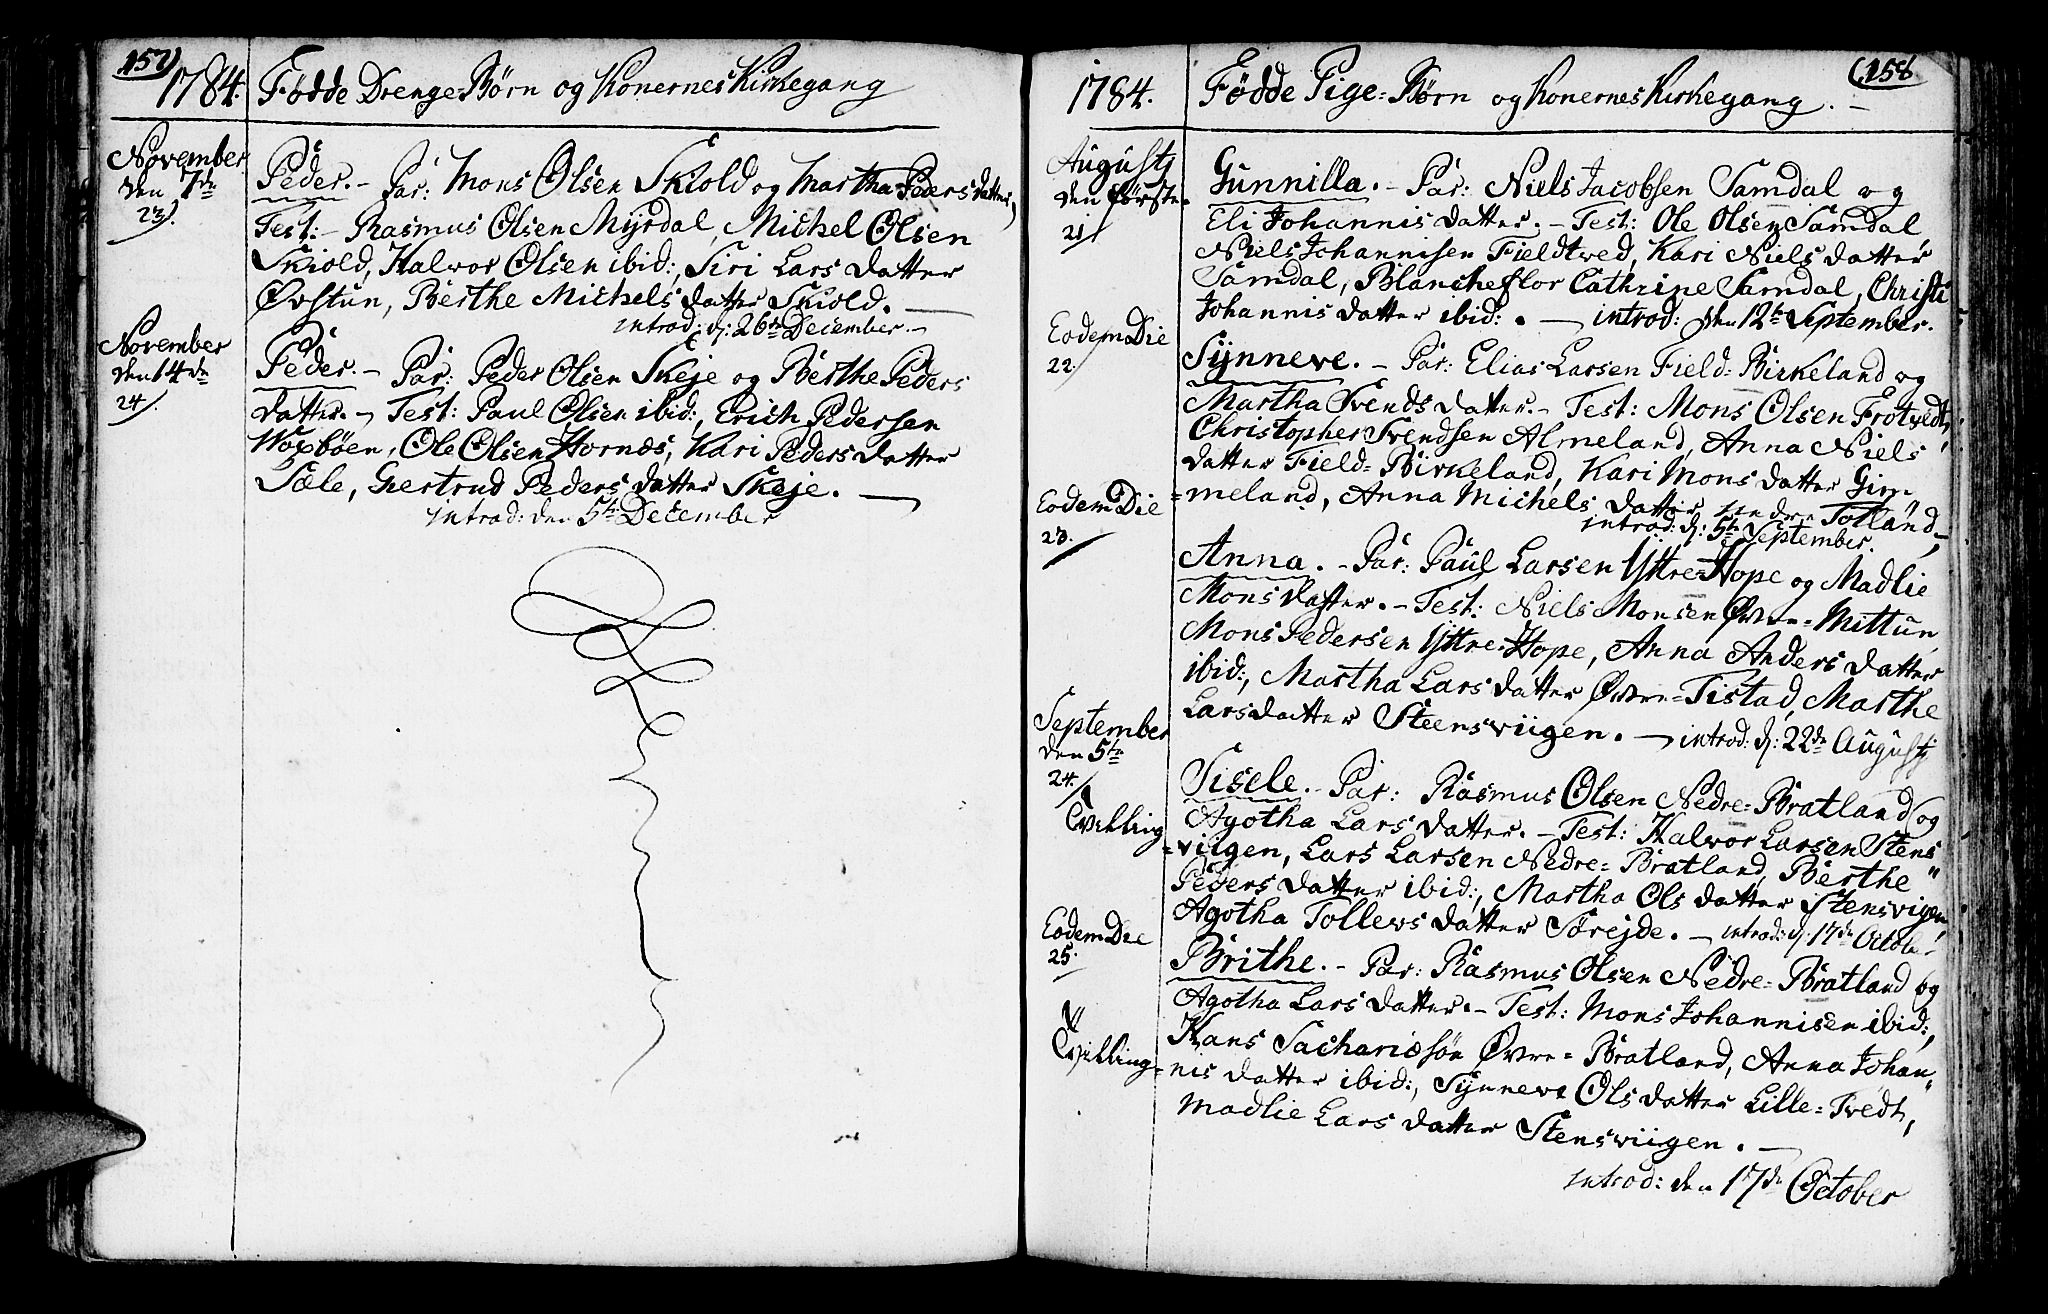 157)
1784. Fødde Drenge-Børn og Konernes Kirkegang
November
den 7de
23).
Peder. - Par: Mons Olsen Skiold og Martha Peders datter,
Test: - Rasmus Olsen Myrdal, Michel Olsen
Skiold, Halvor Olsen ibid:, Siri Lars datter
Øvstun, Berthe Michels datter Skiold. —
introd: d: 26de December. -
November
den 14de
24).
Peder. - Par: Peder Olsen Skeje og Berthe Peders
datter. - Test: Paul Olsen ibid:, Erich Pedersen
Woxbøen, Ole Olsen Hornæs, Kari Peders datter
Sæle, Giertrud Peders datter Skeje. —
introd: den 5te December
(158
1784. Fødde Pige-Børn og Konernes Kirkegang. -
Augustj
den første
21)
Gunnilla. - Par: Niels Jacobsen Samdal og
Eli Johannis datter. - Test: Ole Olsen Samdal
Niels Johannisen Fieldtved, Kari Niels datter
Samdal, Blancheflor Cathrine Samdal, Christi
Johannis datter ibid: . — introd: den 12te September.
Eodem Die
22.
Synneve. - Par: Elias Larsen Field-Birkeland og
Martha Svends datter. - Test: Mons Olsen Frotvedt,
Christopher Svendsen Almeland, Anna Niels
datter Field-Birkeland, Kari Mons datter Gim
=meland, Anna Michels datter indre Totland, -
introd: d: 5te September.
Eodem Die
23.
Anna. - Par: Paul Larsen Yttre-Hope og Madlie
Mons datter. - Test: Niels Monsen Øvre-Mittun,
Mons Pedersen Yttre-Hope, Anna Anders datter
ibid:, Martha Lars datter Øvre-Tistad, Marthe
Lars datter Steensviigen. — introd: d: 22de Augustj
September
den 5te
24.
Tvilling
Sisele. - Par: Rasmus Olsen Nedre-Bratland og
Agotha Lars datter. - Test: Halvor Larsen Stens"
=viigen, Lars Larsen Nedre-Bratland, Berthe "
Peders datter ibid:, Martha Ols datter Stensvigen,
Agotha Tollevs datter Sørejde. - introd: d: 17de October
Eodem Die
25.
Tvilling
Brithe. - Par: Rasmus Olsen Nedre-Bratland og
Agotha Lars datter. - Test: Mons Johannisen ibid:,
Hans Sachariæsøn Øvre-Bratland, Anna Johan"
=nis datter ibid:, Synneve Ols datter Lille-Tvedt,
Madlie Lars datter Stensviigen. —
introd: den 17de October